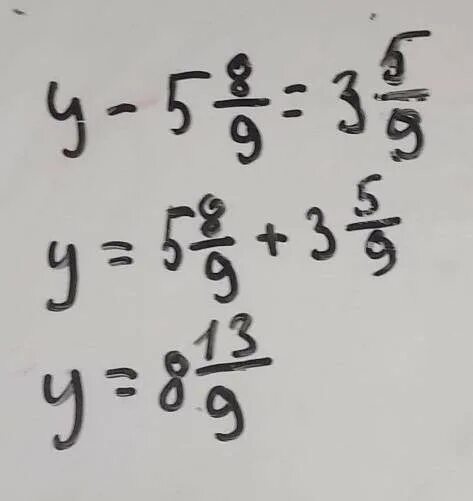 y - 5 8/9 = 3 5/9
y = 5 8/9 + 3 5/9
y = 8 13/9